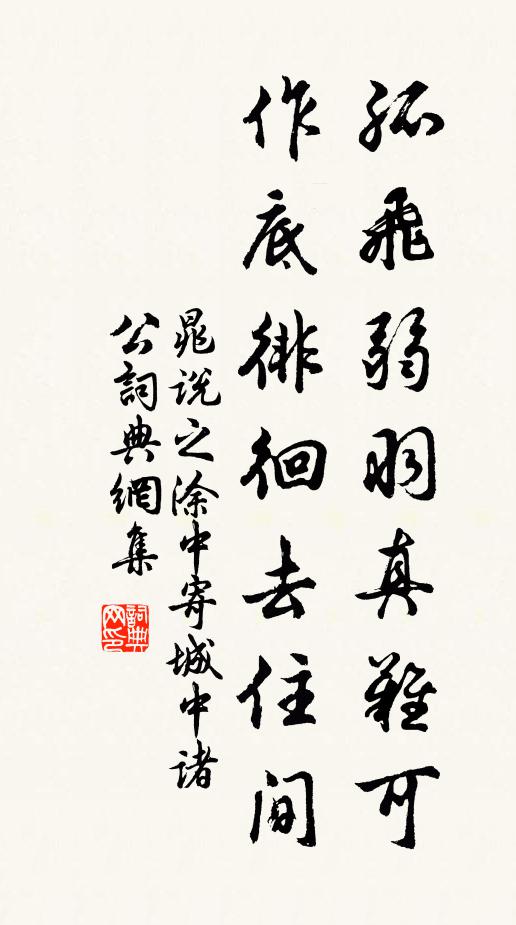 孤飛弱羽真難可
作底徘徊去住間
晁说之涂中寄城中诸
公詞典網集
詞典
网印